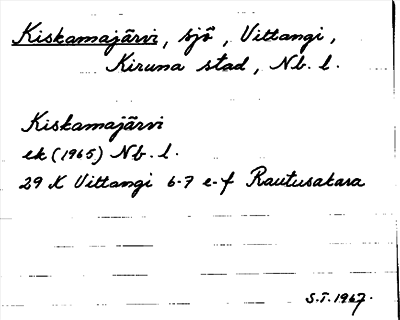 Kiskamajärvi, sjö, Vittangi,
Kiruna stad, Nb. l.
Kiskamajärvi
ek (1965) Nb. l.
29 K Vittangi 6-7 e-f Rautusakara
S.T. 1967.